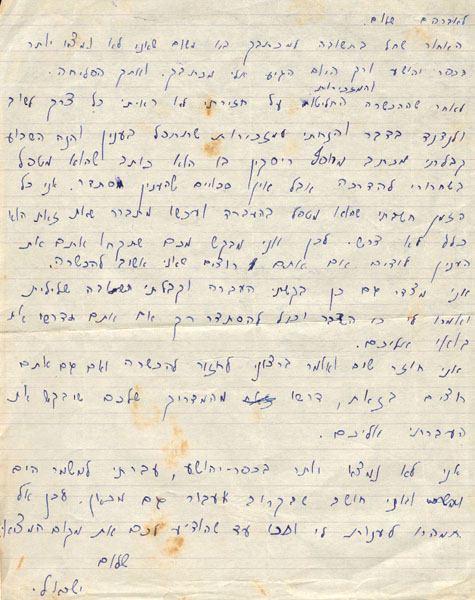 לאברהם שלום.
האחור שחל בתשובה למכתבך בא משום שאני לא נמצא יותר
בכפר יהושע ורק היום הגיע אלי מכתבך. ואתך הסליחה.
והמזכירות
לאחר שההכשרה החליטה על חזירתי לא ראיתי כל צרך לשוב
ולנדנד בדבר והנחתי למזכירות שתטפל בענין והנה השבוע
קבלתי מכתב מ יסקין בו הוא כותב שהוא מטפל
בשחרורי להדרכה אבל אין סכויים שהענין יסתדר. אני כל
הזמן חשבתי שהוא מטפל בהעברה ועכשו מתברר שאת זאת הוא
כלל לא דרש. לכן אני מבקש מכם שתקחו אתם את
הענין לידים אם אתם רוצים שאני אשוב להכשרה.
אני מצדי גם כן בקשתי העברה וקבלתי תשובה שלילית
ואמרו לי כי הדבר יכול להסתדר רק אם אתם תדרשו את
בואי אליכם.
אני חוזר שוב ואומר ברצוני לחזור להכשרה ואם גם אתם
רוצים בזאת, דרשו מהמדריך שלכם שיבקש את
העברתי אליכם.
אני לא נמצא יותר בכפר-יהושע, עברתי למשמר הים
ואני חושב שבקרוב אעבור גם מכאן. על כן אל
תמהרו לענות לי וחכו עד שאודיע לכם את מקום המצאי.
שלום
ישראל.